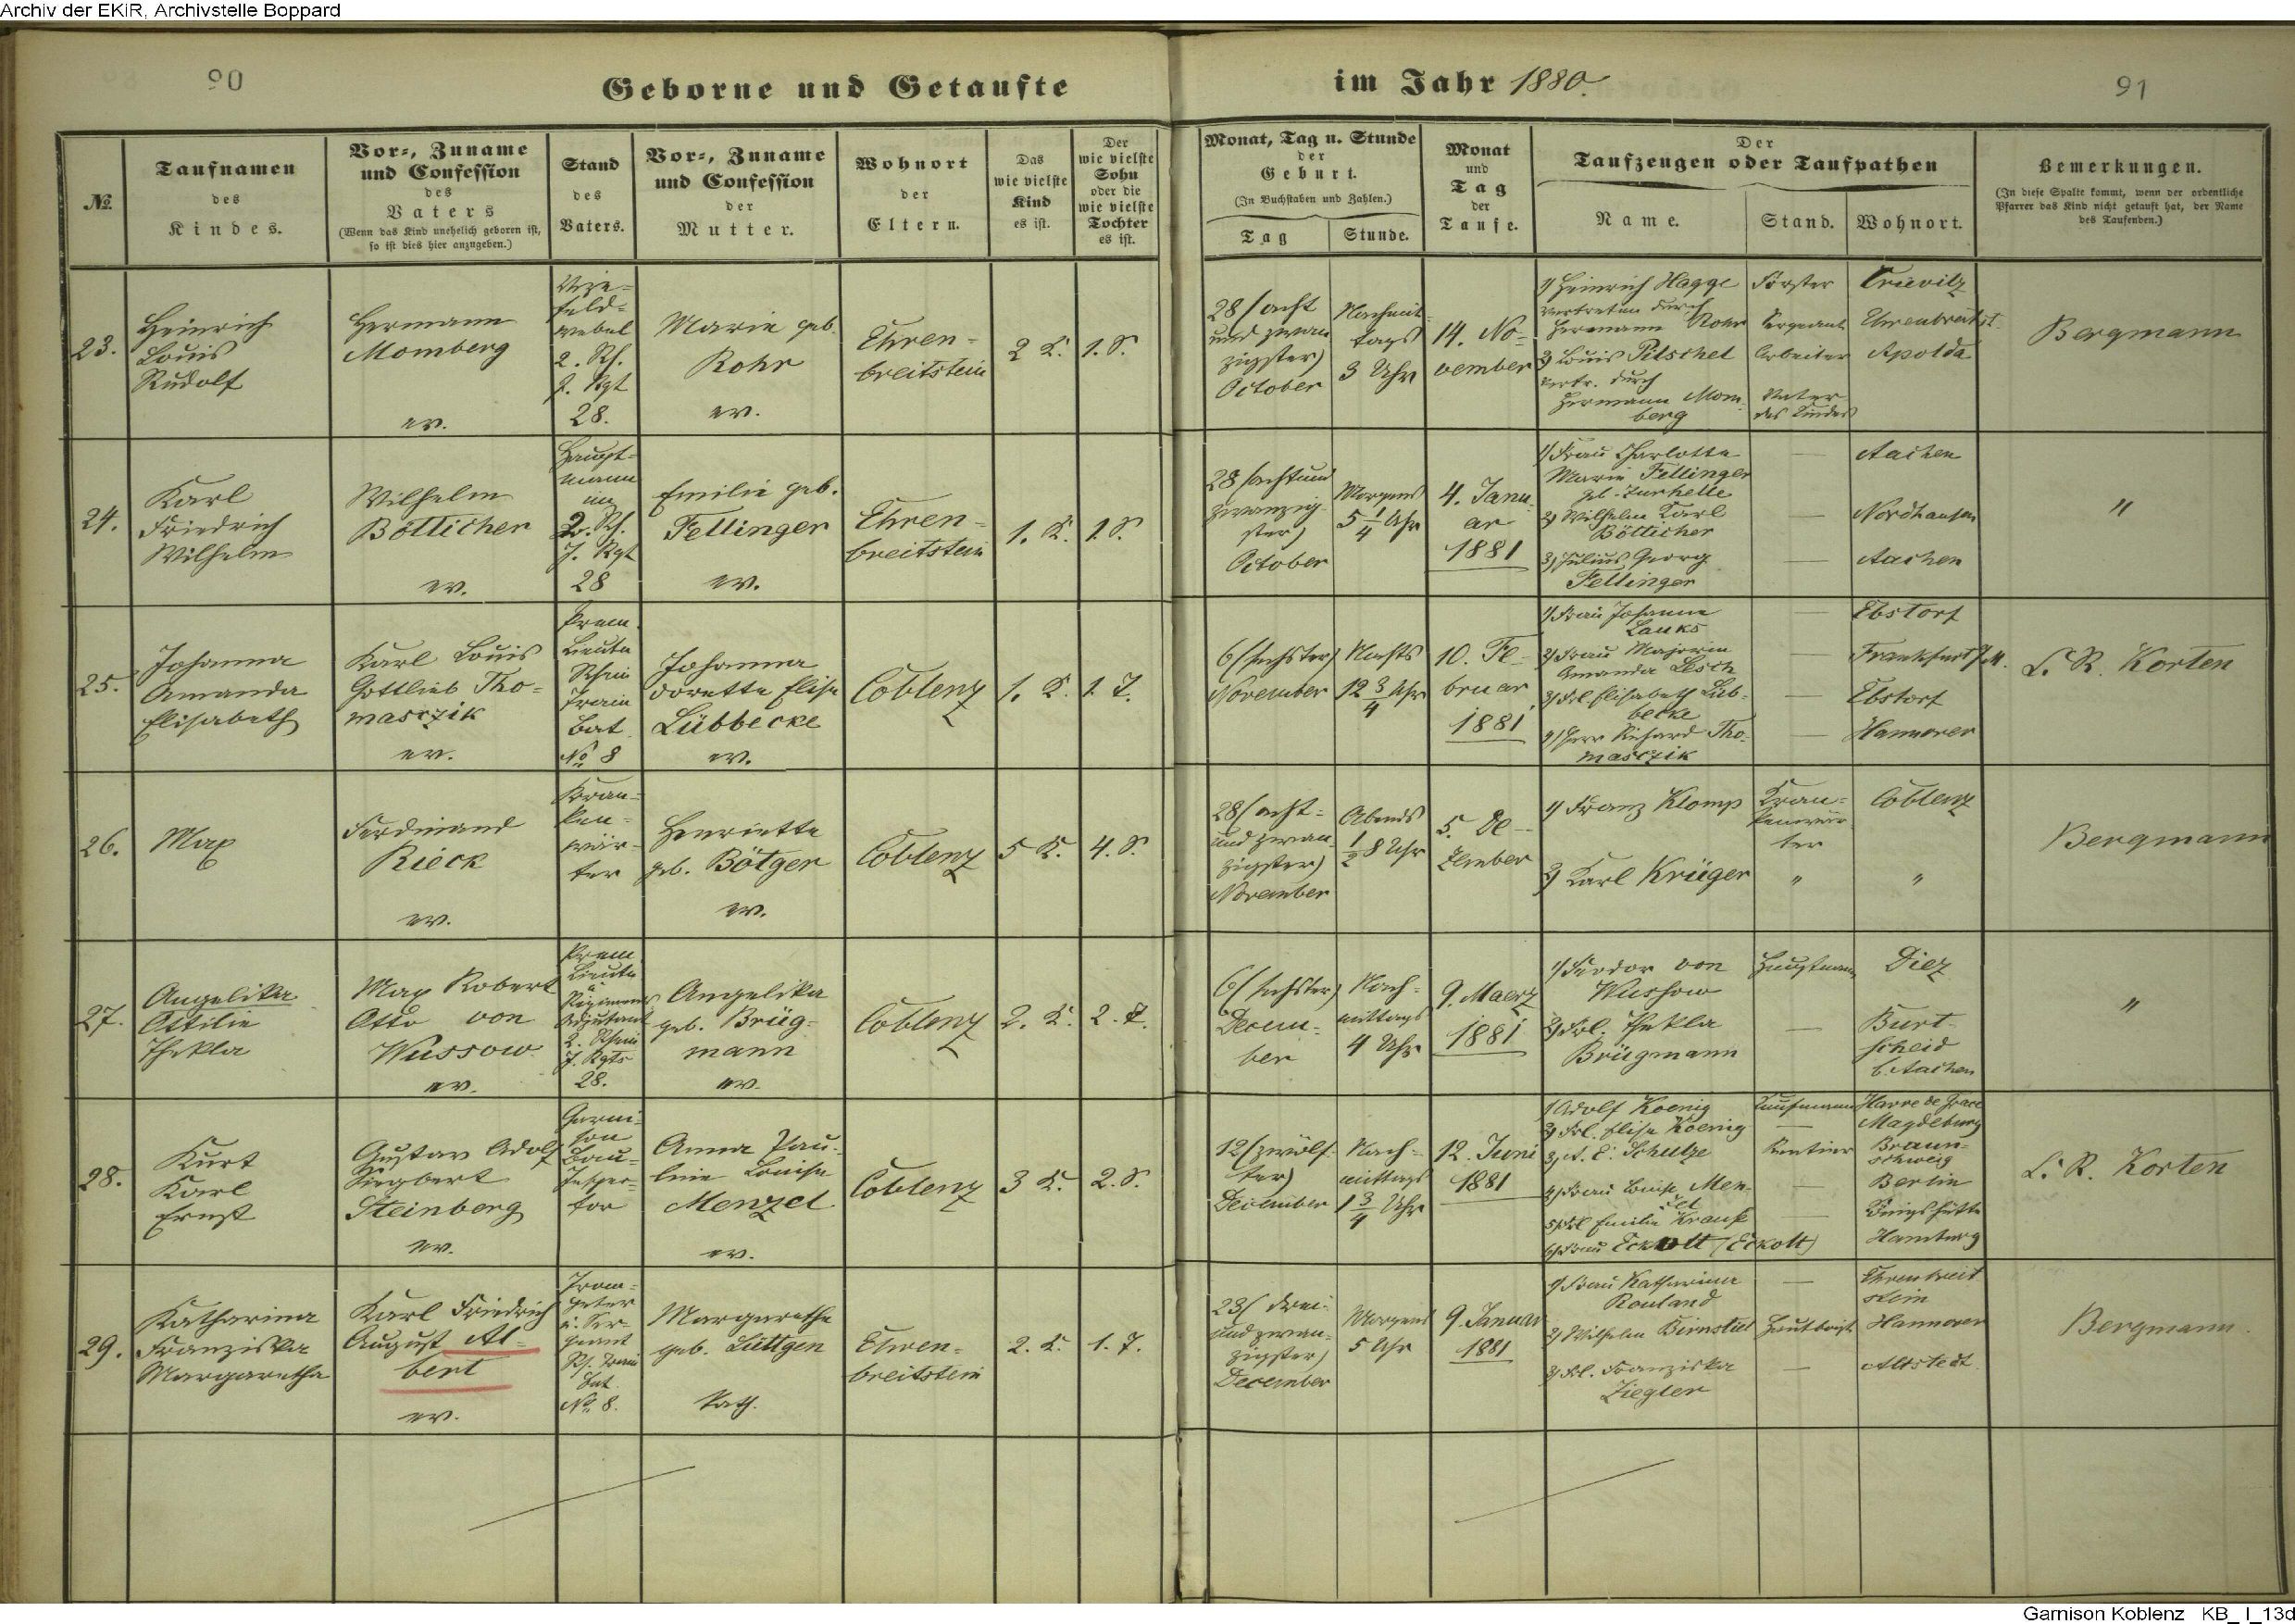 Archiv der EKiR, Archivstelle Boppard
90
Geborne und Getaufte
im Jahr 1880.
91
№.
Taufnamen
des
Kindes.
Vor-, Zuname
und Confession
des
Vaters
(Wenn das Kind unehelich geboren ist,
so ist dies hier anzugeben.)
Stand
des
Vaters.
Vor-, Zuname
und Confession
der
Mutter.
Wohnort
der
Eltern.
Das
wie vielste
Kind
es ist.
Der
wie vielste
Sohn
oder die
wie vielste
Tochter
es ist.
Monat, Tag u. Stunde
der
Geburt.
(In Buchstaben und Zahlen.)
Tag
Stunde.
Monat
und
Tag
der
Taufe.
Der
Taufzeugen oder Taufpathen
Name.
Stand.
Wohnort.
Bemerkungen.
(In diese Spalte kommt, wenn der ordentliche
Pfarrer das Kind nicht getauft hat, der Name
des Taufenden.)
23.
Heinrich
Louis
Rudolf
Hermann
Momberg
ev.
Vize-
feld-
webel
2. Rh.
J. Rgt
28.
Marie geb.
Rohr
ev.
Ehren-
breitstein
2 K.
1. S.
28 (acht
und zwan
zigster)
October
Nachmit-
tags
3 Uhr
14. No-
vember
1) Heinrich Hagge
vertreten durch
Hermann Rohr
2) Louis Pitschel
vertr. durch
Hermann Mom-
berg
Förster
Sergeant
Arbeiter
Vater
des Kindes
Crivitz
Ehrenbreitst.
Apolda
Bergmann
24.
Karl
Friedrich
Wilhelm
Wilhelm
Bötticher
ev.
Haupt-
mann
im
2. Rh.
J. Rgt
28
Emilie geb.
Fellinger
ev.
Ehren-
breitstein
1. K.
1. S.
28 (achtund
zwanzig-
ster)
October
Morgens
5 1/4 Uhr
4. Janu-
ar
1881
1) Frau Charlotte
Marie Fellinger
geb. Zurhelle
2) Wilhelm Karl
Bötticher
3) Julius Georg
Fellinger
Aachen
Nordhausen
Aachen
"
25.
Johanna
Amanda
Elisabeth
Karl Louis
Gottlieb Tho-
masczik
ev.
Prem.
Lieuten
Rhein
Train
Bat.
No 8
Johanna
Dorette Elise
Lübbecke
ev.
Coblenz
1. K.
1. T.
6 (sechster)
November
Nachts
12 3/4 Uhr
10. Fe-
bruar
1881
1) Frau Johanna
Lauks
2) Frau Majorin
Amanda Lesch
3) Frl Elisabeth Lüb-
becke
4) Herr Richard Tho-
masczik
Ebstorf
Frankfurt/M.
Ebstorf
Hannover
L. R. Korten
26.
Max
Ferdinand
Rieck
ev.
Kran-
ken-
wär-
ter
Henriette
geb. Bötger
ev.
Coblenz
5 K.
4. S.
28 (acht-
und zwan-
zigster)
November
Abends
1/2 8 Uhr
5. De-
zember
1) Franz Klomp
2) Karl Krüger
Kran-
kenwär-
ter
"
Coblenz
"
Bergmann
27.
Angelika
Ottilie
Thekla
Max Robert
Otto von
Wussow
ev.
Prem.
Lieuten
u.
Regiments
Adjutant
2. Rhein
J. Rgts
28.
Angelika
geb. Brüg-
mann
ev.
Coblenz
2. K.
2. T.
6 (sechster)
Decem-
ber
Nach-
mittags
4 Uhr
9. Maerz
1881
1) Feodor von
Wussow
2) Frl. Thekla
Brügmann
Hauptmann
Diez
Burt-
scheid
b. Aachen
"
28.
Kurt
Karl
Ernst
Gustav Adolf
Siegbert
Steinberg
ev.
Garni-
son
Bau-
Inspec-
tor
Anna Pau-
line Louise
Menzel
ev.
Coblenz
3 K.
2. S.
12 (zwölf-
ter)
December
Nach-
mittags
1 3/4 Uhr
12. Juni
1881
1) Adolf Koenig
2) Frl. Elise Koenig
3) A. E. Schulze
4) Frau Louise Men-
zel
5) Frl Emilie Krause
6) Frau Eckolt (Eckolt)
Kaufmann
Rentier
Havre de Grace
Magdeburg
Braun-
schweig
Berlin
Königshütte
Hamburg
L. R. Korten
29.
Katharina
Franziska
Margaretha
Karl Friedrich
August Al-
bert
ev.
Trom-
peter
u. Ser-
geant
Rh. Train
Bat.
No 8.
Margarethe
geb. Lüttgen
Kath.
Ehren-
breitstein
2. K.
1. T.
23 (drei-
und zwan-
zigster)
December
Morgens
5 Uhr
9. Januar
1881
1) Frau Katharina
Rouland
2) Wilhelm Birnstiel
3) Frl. Franziska
Ziegler
Hautboist
Ehrenbreit
stein
Hannover
Allstedt.
Bergmann.
Garnison Koblenz KB_ I_13d